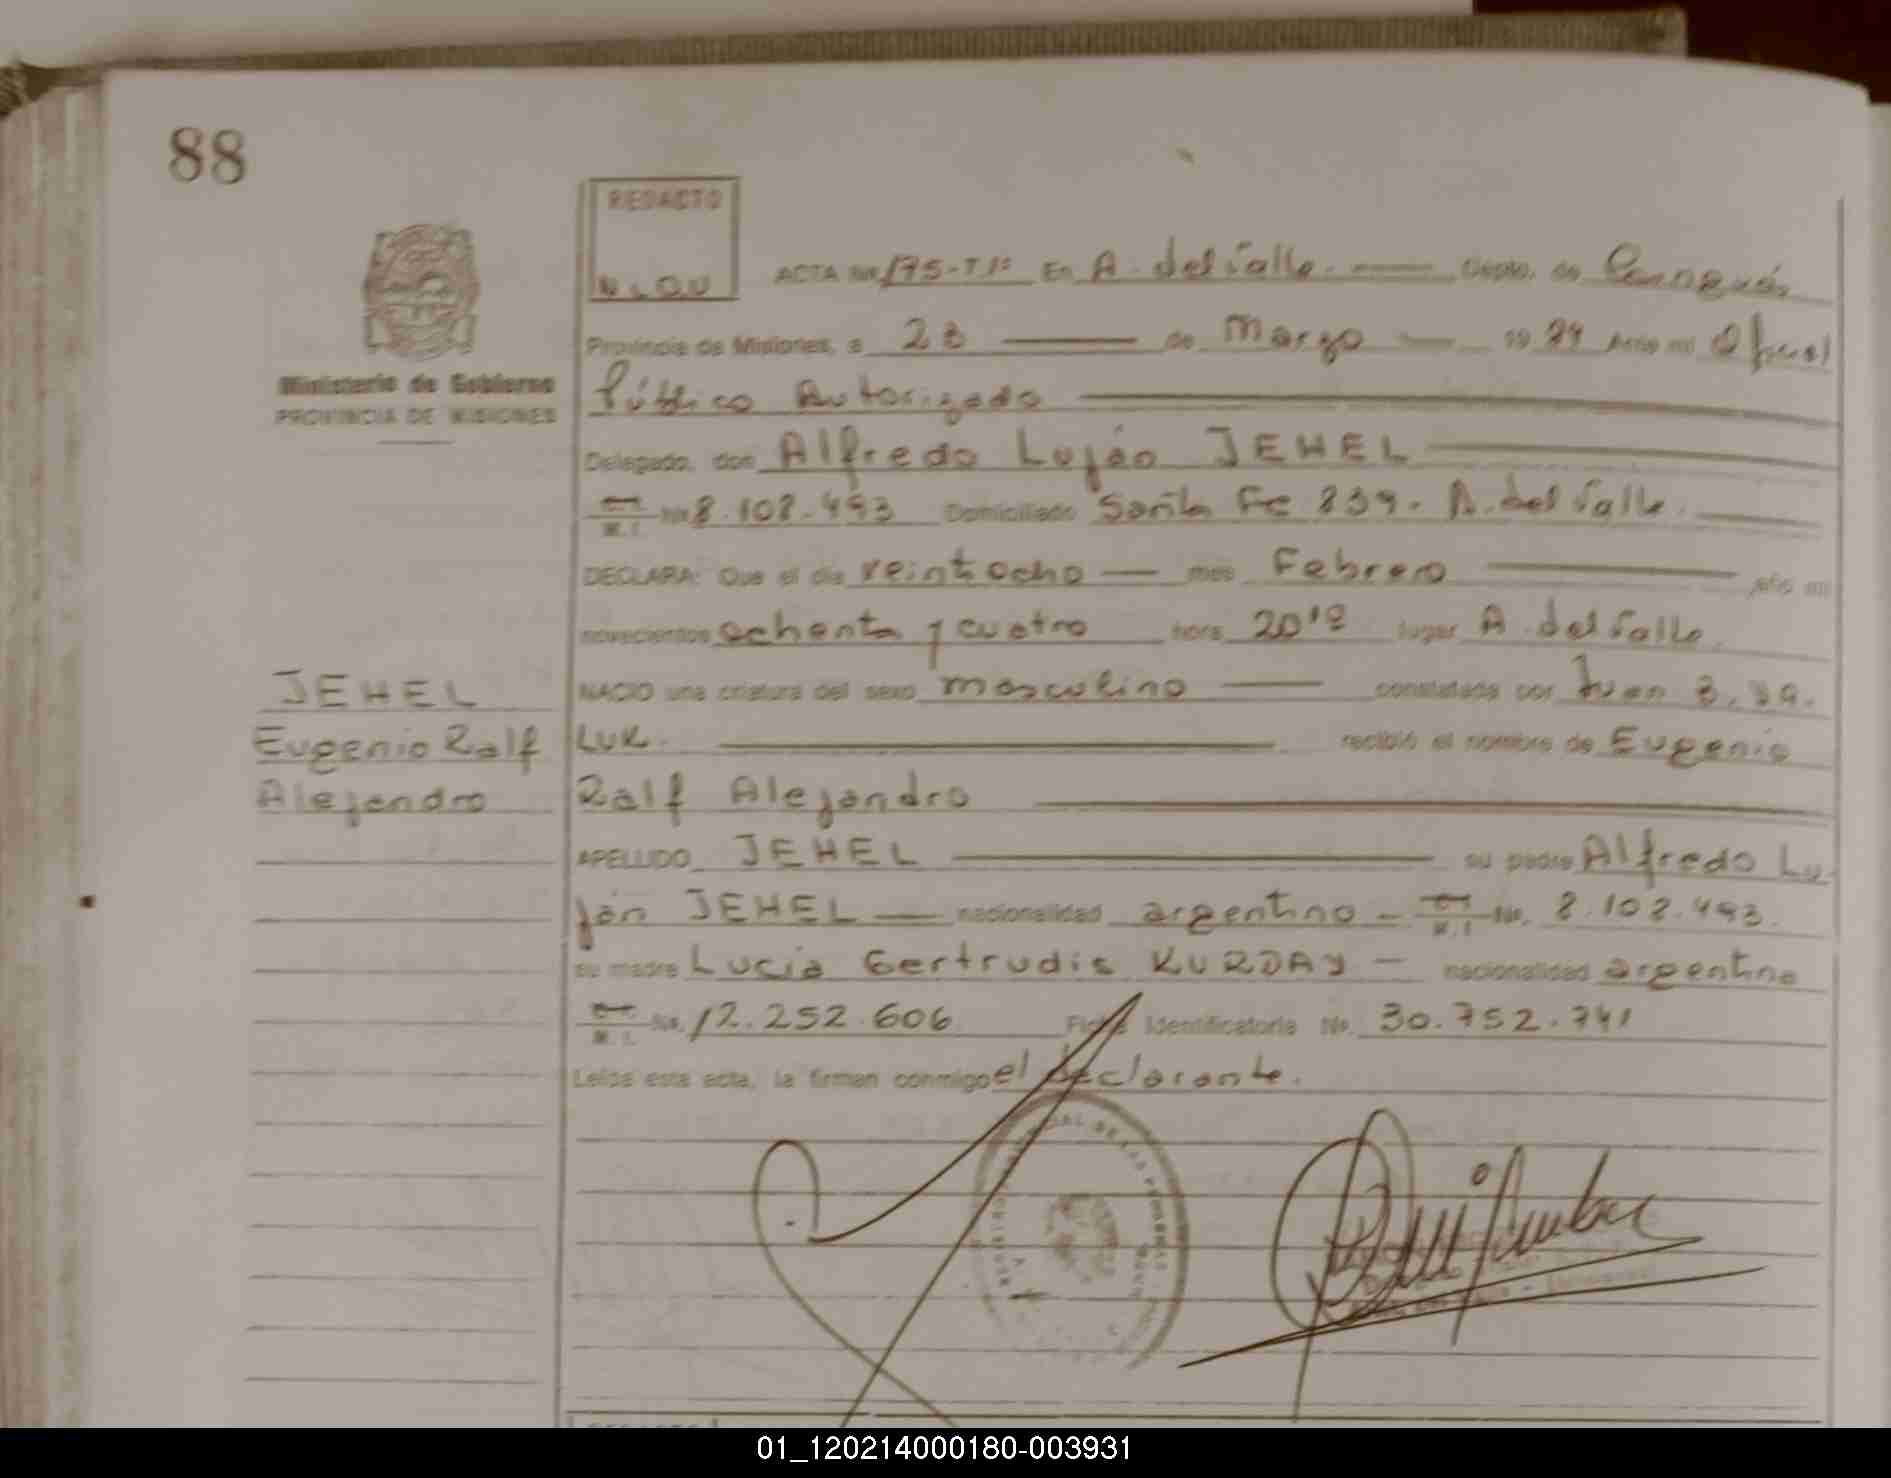 88
REDACTO
ACTA Nº 175-Tº1º En A. del Valle. Depto. de Cainguás
Provincia de Misiones, a 23 de Marzo 19 84 Ante mi Oficial
Ministerio de Gobierno
PROVINCIA DE MISIONES
Público Autorizado
Delegado, don Alfredo Luján JEHEL
M. I. Nº 8.108.493 Domiciliado Santa Fe 839. A. del Valle.
DECLARA: Que el día veintiocho mes Febrero año mil
novecientos ochenta y cuatro hora 20'18 lugar A. del Valle.
NACIO una criatura del sexo masculino constatada por Juan B.
JEHEL
Eugenio Ralf
Alejandro
LUK. recibió el nombre de Eugenio
Ralf Alejandro
APELLIDO JEHEL su padre Alfredo Lu
ján JEHEL nacionalidad argentino M. I. No. 8.108.493.
su madre Lucia Gertrudis KURDAY nacionalidad argentina
M. I. No. 12.252.606 Ficha Identificatoria No. 30.752.741
Leída esta acta, la firman conmigo el declarante.
01_120214000180-003931